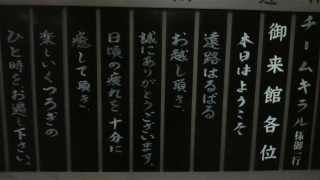 チームキラル様御一行
御来館各位
本日はようこそ
遠路はるばる
お越し頂き、
誠にありがとうございます。
日頃の疲れを、十分に
癒して頂き、
楽しいくつろぎの
ひと時をお過し下さい。